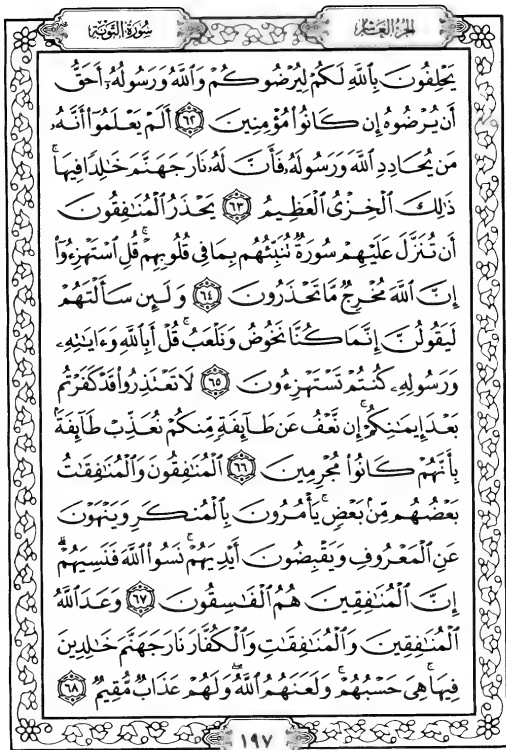 الجزء العاشر
سورة التوبة
يَحْلِفُونَ بِٱللَّهِ لَكُمْ لِيُرْضُوكُمْ وَٱللَّهُ وَرَسُولُهُۥٓ أَحَقُّ
أَن يُرْضُوهُ إِن كَانُوا۟ مُؤْمِنِينَ ٦٢ أَلَمْ يَعْلَمُوٓا۟ أَنَّهُۥ
مَن يُحَادِدِ ٱللَّهَ وَرَسُولَهُۥ فَأَنَّ لَهُۥ نَارَ جَهَنَّمَ خَٰلِدًا فِيهَا ۚ
ذَٰلِكَ ٱلْخِزْىُ ٱلْعَظِيمُ ٦٣ يَحْذَرُ ٱلْمُنَٰفِقُونَ
أَن تُنَزَّلَ عَلَيْهِمْ سُورَةٌ تُنَبِّئُهُم بِمَا فِى قُلُوبِهِمْ ۚ قُلِ ٱسْتَهْزِءُوٓا۟
إِنَّ ٱللَّهَ مُخْرِجٌ مَّا تَحْذَرُونَ ٦٤ وَلَئِن سَأَلْتَهُمْ
لَيَقُولُنَّ إِنَّمَا كُنَّا نَخُوضُ وَنَلْعَبُ ۚ قُلْ أَبِٱللَّهِ وَءَايَٰتِهِۦ
وَرَسُولِهِۦ كُنتُمْ تَسْتَهْزِءُونَ ٦٥ لَا تَعْتَذِرُوا۟ قَدْ كَفَرْتُم
بَعْدَ إِيمَٰنِكُمْ ۚ إِن نَّعْفُ عَن طَآئِفَةٍ مِّنكُمْ نُعَذِّبْ طَآئِفَةًۢ
بِأَنَّهُمْ كَانُوا۟ مُجْرِمِينَ ٦٦ ٱلْمُنَٰفِقُونَ وَٱلْمُنَٰفِقَٰتُ
بَعْضُهُم مِّنۢ بَعْضٍ ۚ يَأْمُرُونَ بِٱلْمُنكَرِ وَيَنْهَوْنَ
عَنِ ٱلْمَعْرُوفِ وَيَقْبِضُونَ أَيْدِيَهُمْ ۚ نَسُوا۟ ٱللَّهَ فَنَسِيَهُمْ ۗ
إِنَّ ٱلْمُنَٰفِقِينَ هُمُ ٱلْفَٰسِقُونَ ٦٧ وَعَدَ ٱللَّهُ
ٱلْمُنَٰفِقِينَ وَٱلْمُنَٰفِقَٰتِ وَٱلْكُفَّارَ نَارَ جَهَنَّمَ خَٰلِدِينَ
فِيهَا ۚ هِىَ حَسْبُهُمْ ۚ وَلَعَنَهُمُ ٱللَّهُ ۖ وَلَهُمْ عَذَابٌ مُّقِيمٌ ٦٨
١٩٧